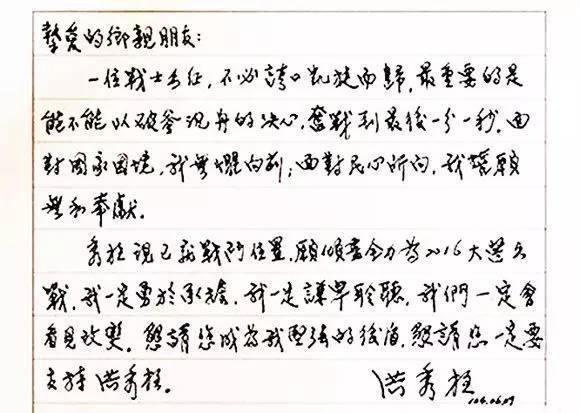 摯愛的鄉親朋友:
一位戰士出征,不必誇口凱旋而歸,最重要的是
能不能以破釜沉舟的決心,奮戰到最後一分一秒。面
對國家困境,我無懼向前;面對民心所向,我誓願
無私奉獻。
秀柱現已就戰鬥位置,願傾盡全力為2016大選出
戰,我一定勇於承擔,我一定謙卑聆聽,我們一定會
看見改變。懇請您成為我堅強的後盾,懇請您一定要
支持洪秀柱。 洪秀柱